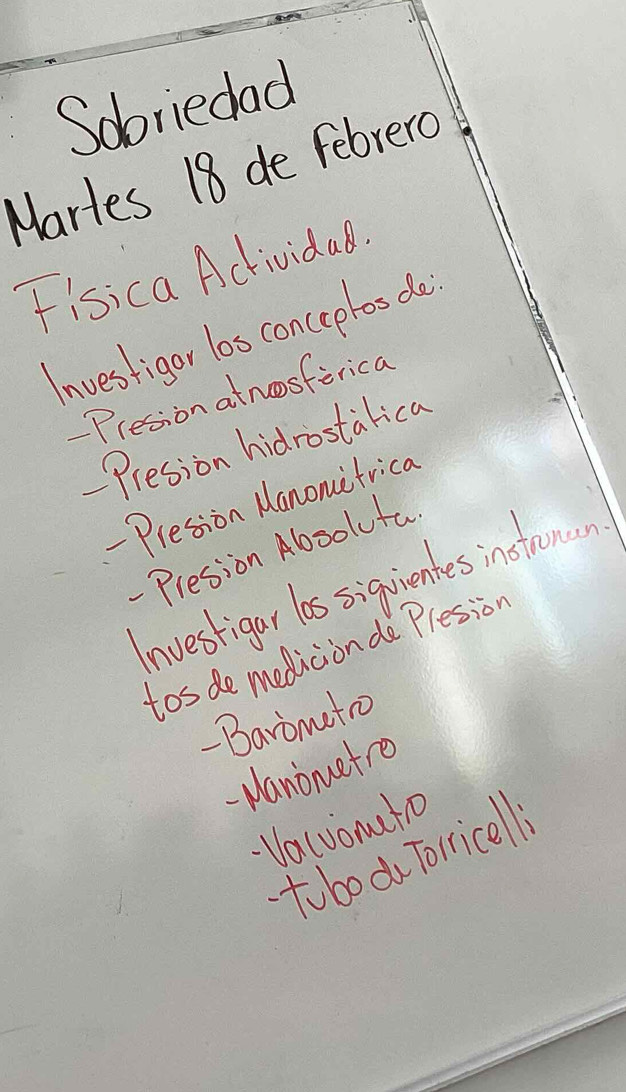 Sobriedad
Martes 18 de febrero
Física Actividad.
Investigar los conceptos de:
-Presión atmosférica
-Presión hidrostática
-Presión Manométrica
-Presión Absoluta.
Investigar los siguientes instrumen-
tos de medición de Presión
-Barómetro
-Manómetro
-Vacuómetro
-tubo de Torricelli